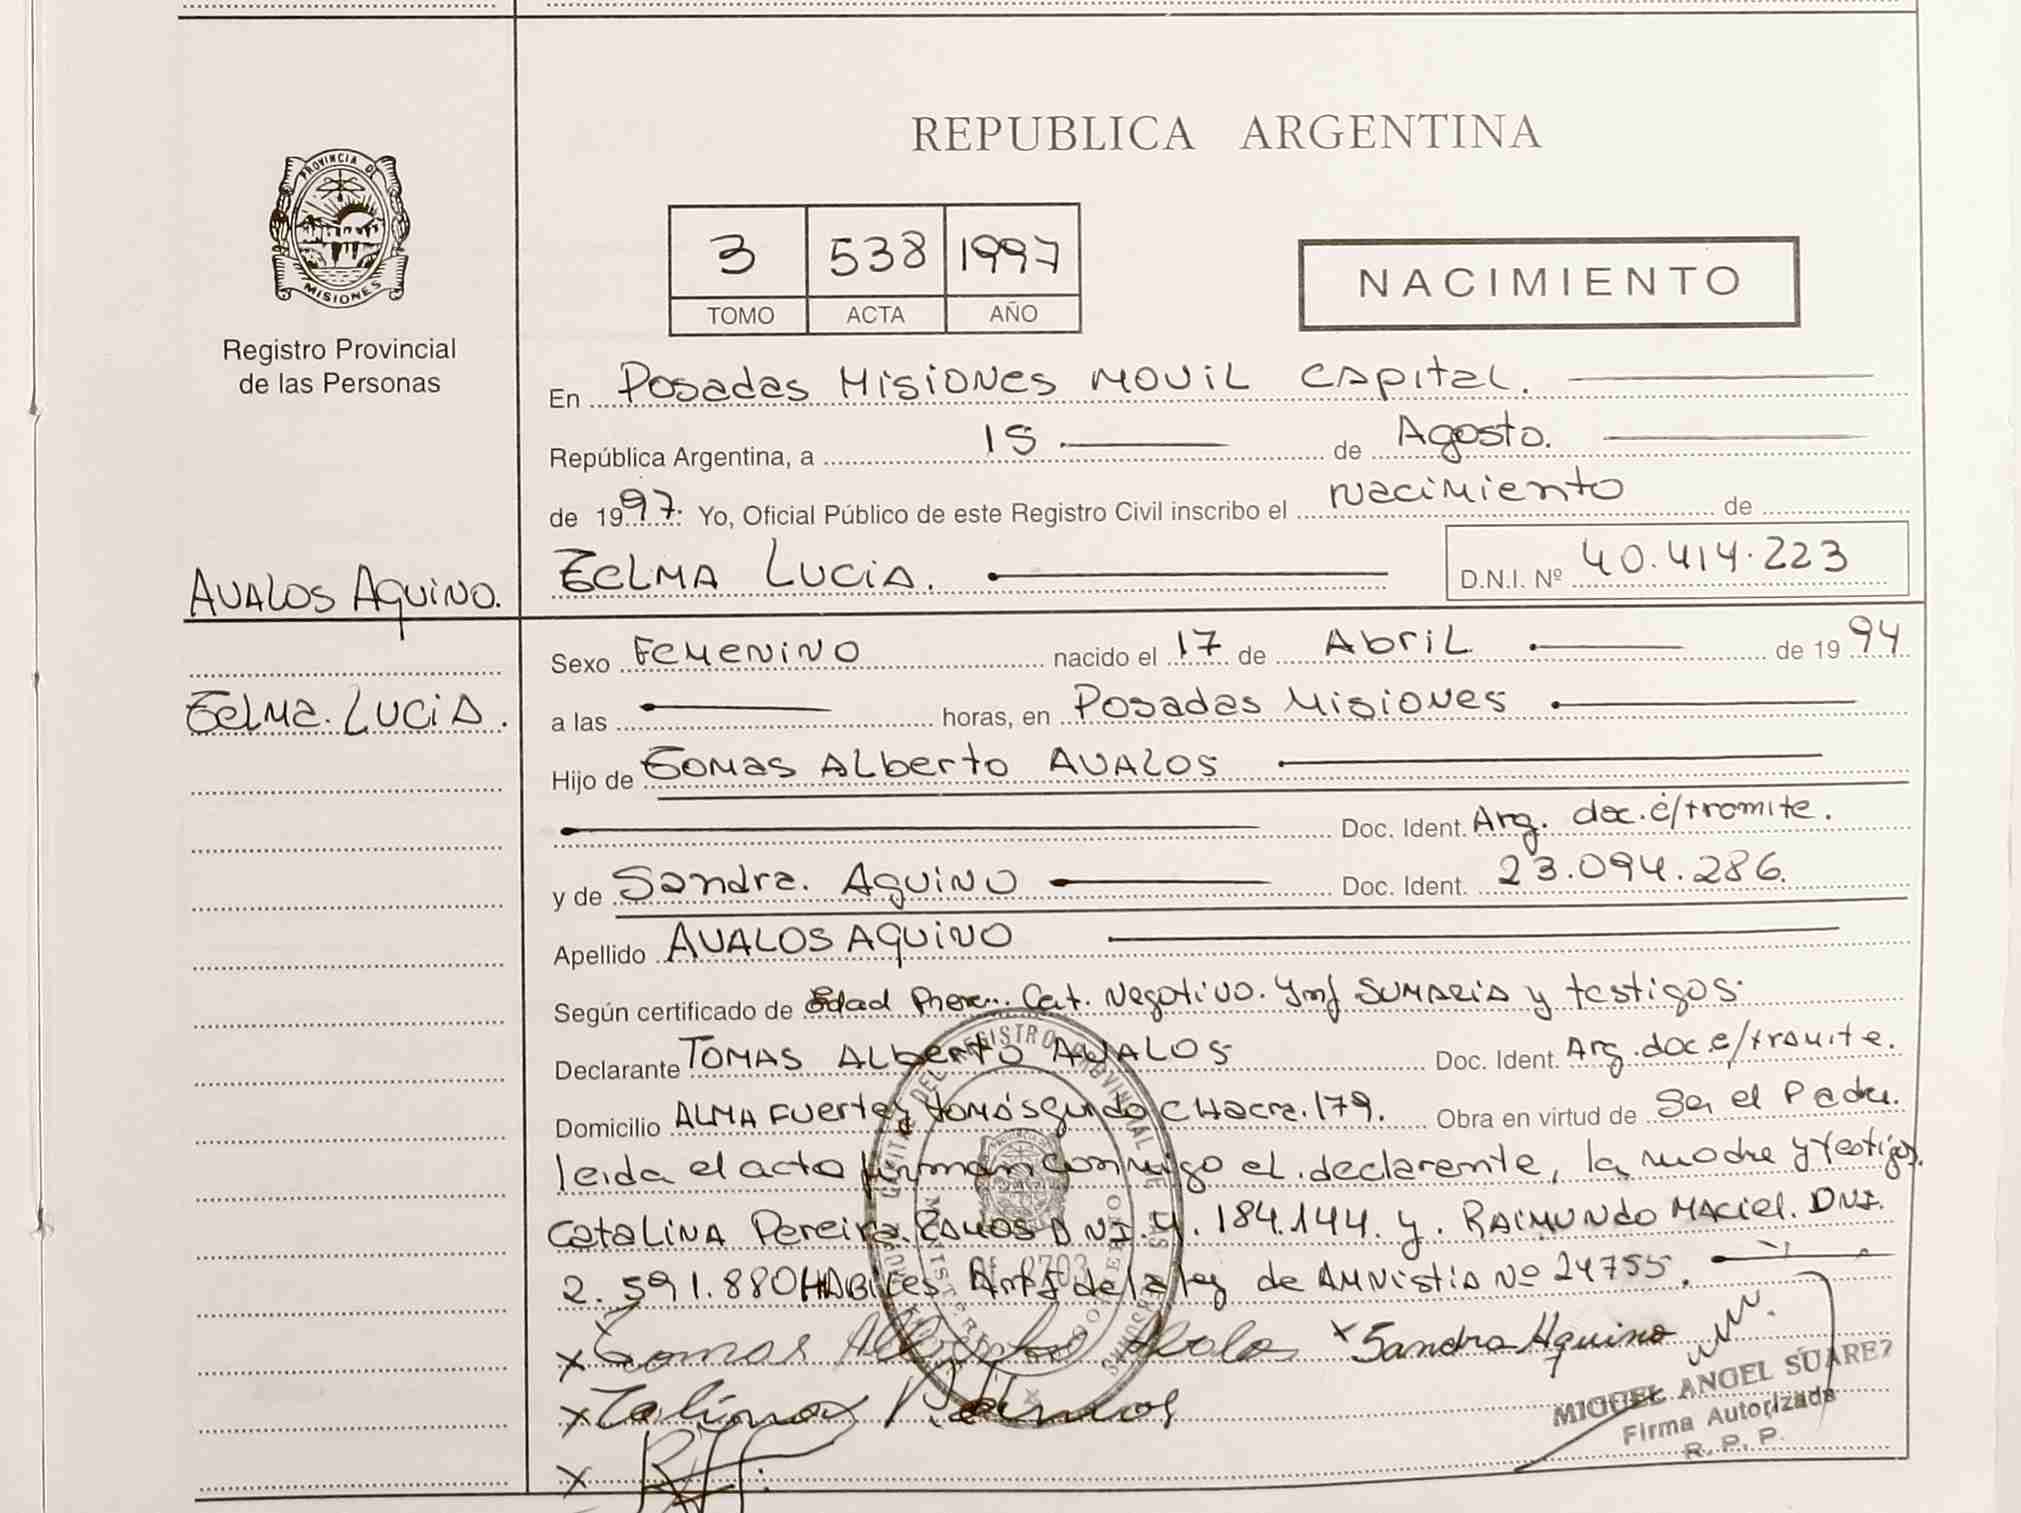 REPUBLICA ARGENTINA
PROVINCIA DE
MISIONES
Registro Provincial
de las Personas
3 538 1997
TOMO ACTA AÑO
NACIMIENTO
En Posadas Misiones Movil Capital.
República Argentina, a 15 de Agosto.
de 1997. Yo, Oficial Público de este Registro Civil inscribo el nacimiento de
AVALOS AQUINO.
TELMA LUCIA. D.N.I. Nº 40.414.223
Sexo Femenino nacido el 17 de Abril de 1994
Telma. Lucia.
a las horas, en Posadas Misiones
Hijo de Tomas Alberto AVALOS
Doc. Ident. Arg. doc. e/tramite.
y de Sandra. Aquino Doc. Ident. 23.094.286.
Apellido AVALOS AQUINO
Según certificado de Edad Cert. Negativo. Inf Sumaria y testigos.
Declarante TOMAS ALberto AVALOS Doc. Ident. Arg. doc e/tramite.
Domicilio ALMA Fuerte CHacra. 179. Obra en virtud de Ser el Padre.
leida el acta firman conmigo el declarante, la madre y testigos.
Catalina Pereira Ramos D.N.I. 4.184.144. y. Raimundo Maciel. DNI.
2.591.880 HABiles de la ley de Amnistia Nº 24755.
x Tomas Alberto Avalos x Sandra Aquino
x Catalina P. Ramos
x
MIGUEL ANGEL SUAREZ
Firma Autorizada
R. P. P.